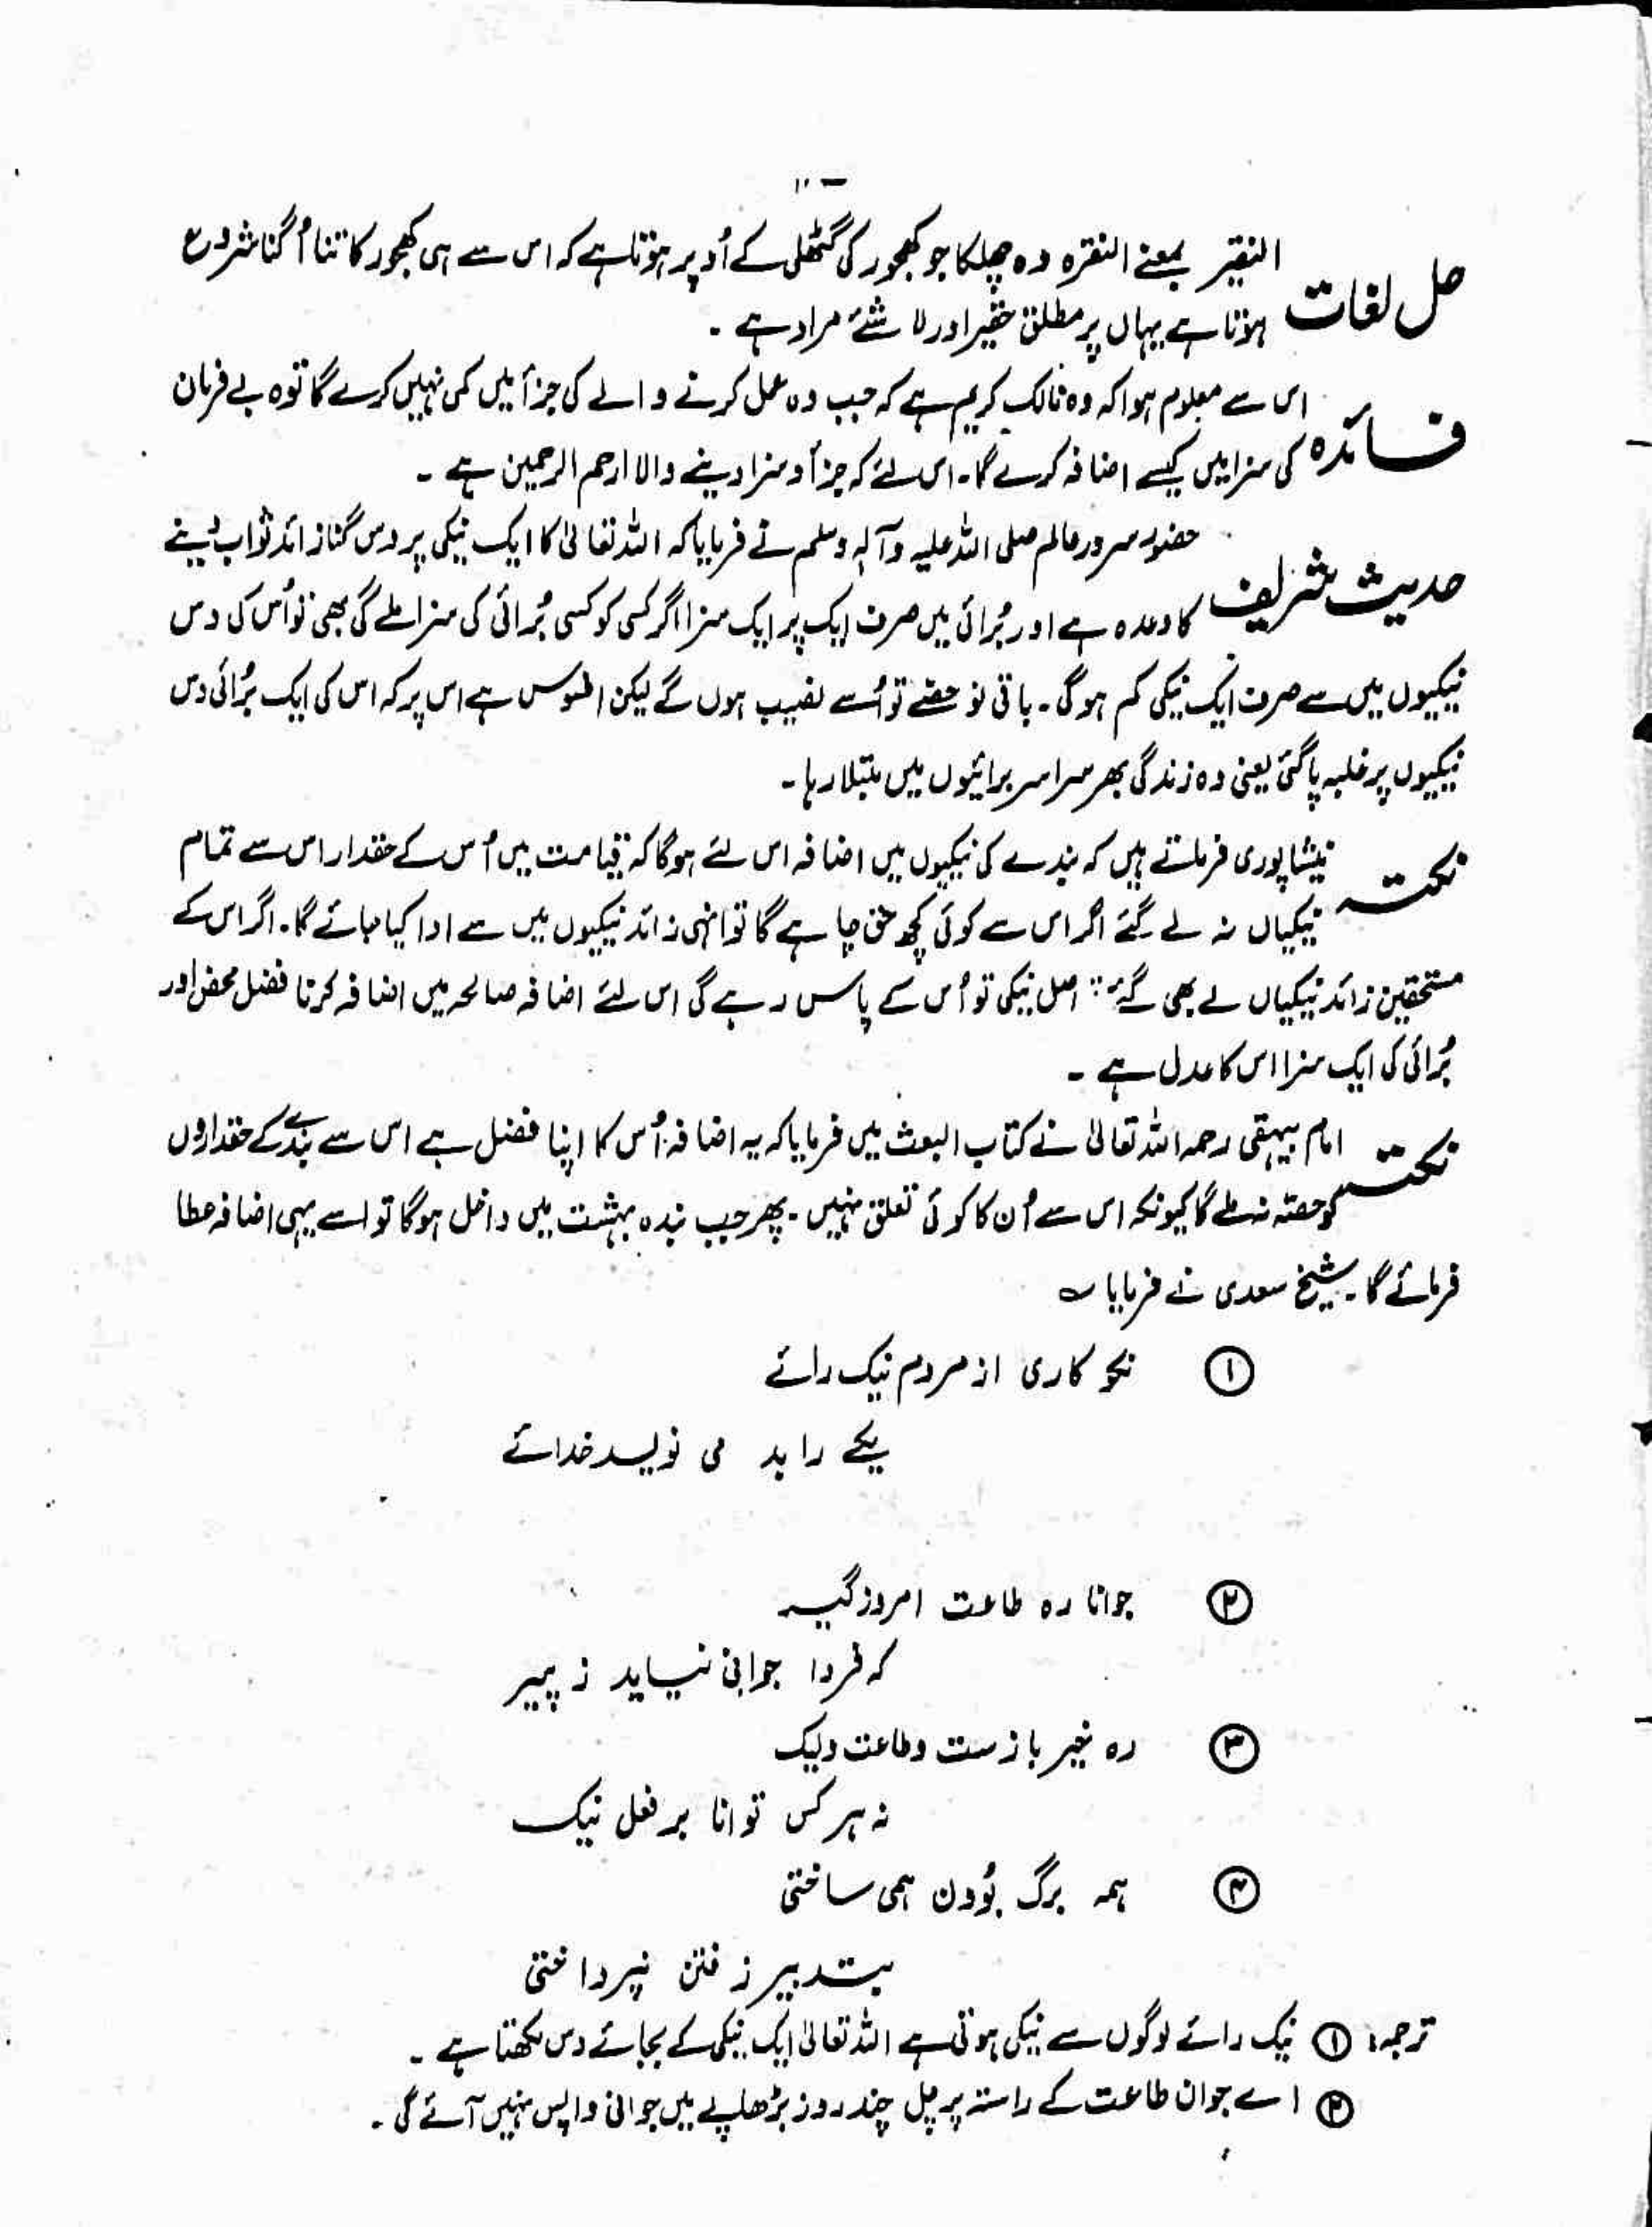 حل لغات النقیر بمعنے النقرہ وہ چھلکا جو کھجور کی گٹھلی کے اُوپر ہوتا ہے کہ اس سے ہی کھجور کا تنا اُگنا شروع
ہوتا ہے یہاں پر مطلق حقیر اور لا شئے مراد ہے ۔
فائدہ اس سے معلوم ہوا کہ وہ مالک کریم ہے کہ جب وہ عمل کرنے والے کی جزأ میں کمی نہیں کرے گا تو وہ بے فرمان
کی سزا میں کیسے اضافہ کرے گا۔ اس لئے کہ جزأ و سزا دینے والا ارحم الرحمین ہے ۔
حدیث شریف حضور سرور عالم صلی اللہ علیہ وآلہٖ وسلم نے فرمایا کہ اللہ تعالیٰ کا ایک نیکی پر دس گنا زائد ثواب دینے
کا وعدہ ہے اور بُرائی میں صرف ایک پر ایک سزا اگر کسی کو کسی بُرائی کی سزا ملے گی بھی تو اُس کی دس
نیکیوں میں سے صرف ایک نیکی کم ہو گی۔ باقی نو حصّے تو اُسے نصیب ہوں گے لیکن افسوس ہے اس پر کہ اس کی ایک بُرائی دس
نیکیوں پر غلبہ پا گئی یعنی وہ زندگی بھر سراسر برائیوں میں مبتلا رہا ۔
نکتہ نیشاپوری فرماتے ہیں کہ بندے کی نیکیوں میں اضافہ اس لئے ہو گا کہ قیامت میں اُس کے حقدار اس سے تمام
نیکیاں نہ لے گئے اگر اس سے کوئی کچھ حق چاہے گا تو انہی زائد نیکیوں میں سے ادا کیا جائے گا۔ اگر اس کے
مستحقین زائد نیکیاں لے بھی گئے اصل نیکی تو اُس کے پاس رہے گی اس لئے اضافہ صالحہ میں اضافہ کرنا فضل محض اور
بُرائی کی ایک سزا اس کا عدل ہے ۔
نکتہ امام بیہقی رحمہ اللہ تعالیٰ نے کتاب البعث میں فرمایا کہ یہ اضافہ اُس کا اپنا فضل ہے اس سے بندے کے حقداروں
کو حصّہ نہ ملے گا کیونکہ اس سے اُن کا کوئی تعلق نہیں۔ پھر جب بندہ بہشت میں داخل ہو گا تو اسے یہی اضافہ عطا
فرمائے گا۔ شیخ سعدی نے فرمایا ؎
① نکو کاری از مردم نیک رائے
یکے را بدہ می نویسد خدائے
② جوانا رہ طاعت امروز گیر
کہ فردا جوانی نیاید ز پیر
③ رہ خیر باز ست و طاعت ولیک
نہ ہر کس توانا بر فعل نیک
④ ہمہ برگ بُودن ہمی ساختی
بتدبیر ز فتن نپرداختی
ترجمہ: ① نیک رائے لوگوں سے نیکی ہوتی ہے اللہ تعالیٰ ایک نیکی کے بجائے دس لکھتا ہے ۔
② اے جوان طاعت کے راستہ پر چل چند روز بڑھاپے میں جوانی واپس نہیں آئے گی ۔